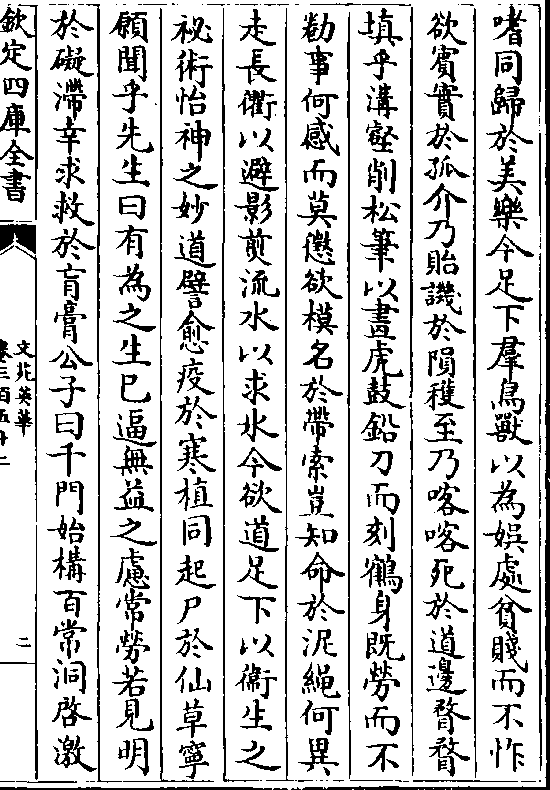 嗜同歸於美樂今足下羣鳥獸以為娛處貧賤而不怍
欲賓實於孤介乃貽譏於隕穫至乃喀喀死於道邊瞀瞀
填乎溝壑削松筆以畫虎鼓鉛刀而刻鶴身既勞而不
勸事何感而莫懲欲模名於帶索豈知命於泥繩何異
走長衢以避影煎流水以求冰今欲道足下以衛生之
祕術怡神之妙道譬愈疫於寒植同起尸於仙草寧
願聞乎先生曰有為之生已逼無益之慮常勞若見明
於礙滯幸求救於肓膏公子曰千門始構百常洞啓激
欽定四庫全書
文苑英華
卷三百五十二
二